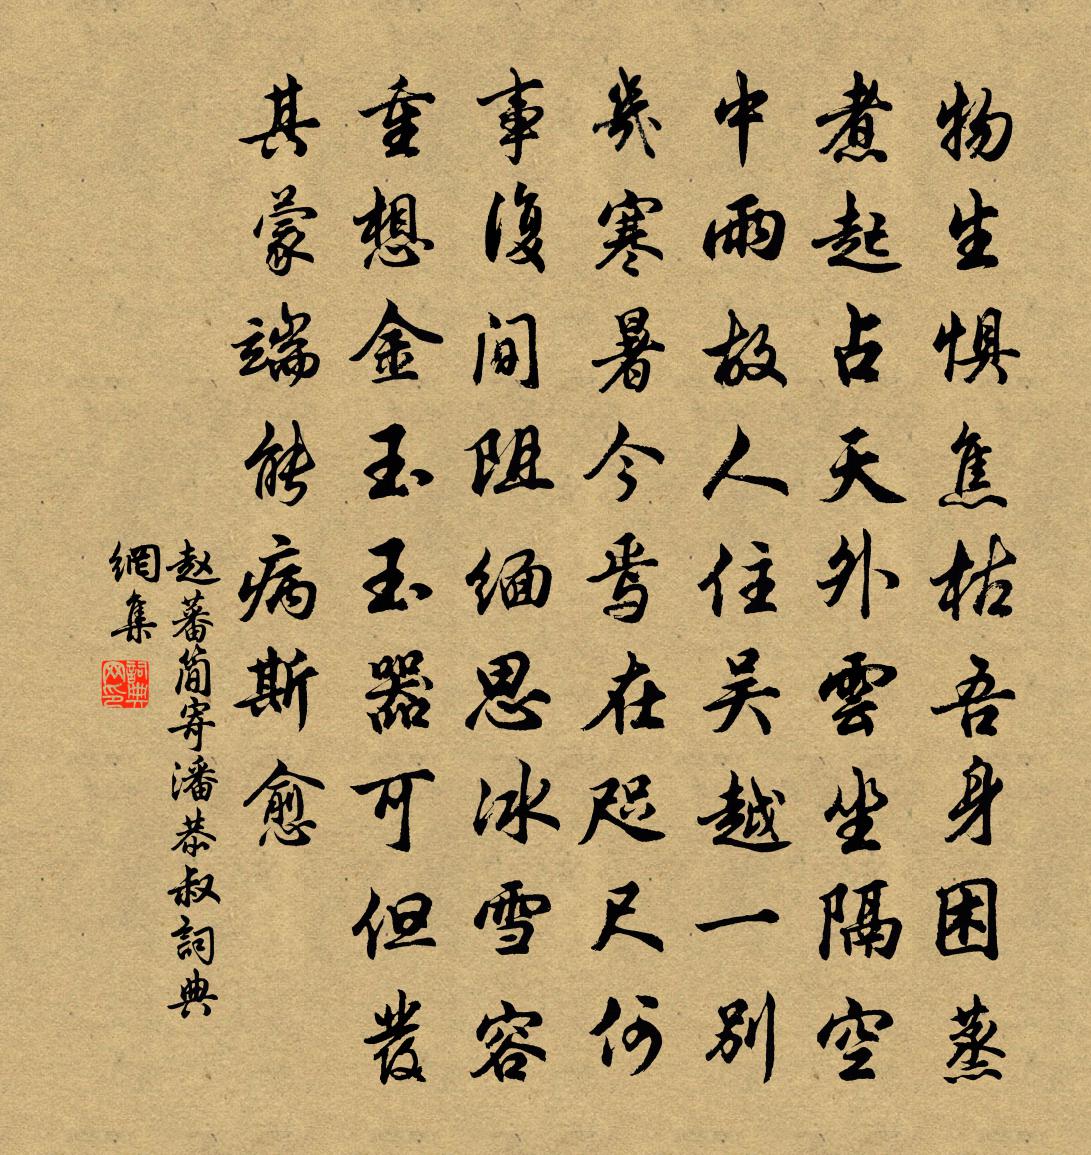 物生惧焦枯吾身困蒸
煮起占天外雲坐隔空
中雨故人住吴越一别
幾寒暑今焉在咫尺何
事復间阻缅思冰雪容
重想金玉玉器可但發
其蒙端能病斯愈
赵蕃简寄潘恭叔詞典
網集
詞典
网印